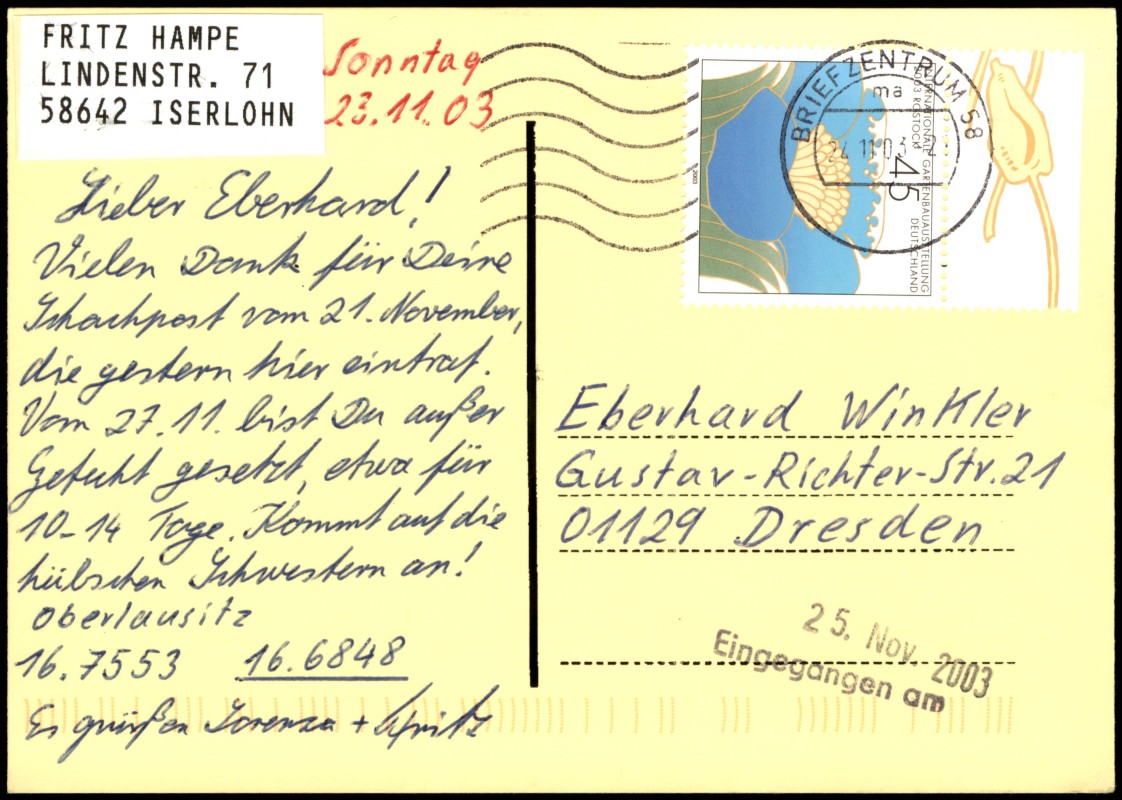 FRITZ HAMPE
LINDENSTR. 71
58642 ISERLOHN
Sonntag
23.11.03
Lieber Eberhard,!
Vielen Dank für Deine
Schachpost vom 21. November,
die gestern hier eintraf.
Vom 27.11. bist Du außer
Gefecht gesetzt, etwa für
10-14 Tage. Kommt auf die
hübschen Schwestern an!
Oberlausitz
16.7553 16.6848
Es grüßen Lorenza + Fritz
BRIEFZENTRUM 58
ma
24.11.03
INTERNATIONALE GARTENBAUAUSSTELLUNG
2003 ROSTOCK
45
DEUTSCHLAND
2003
Eberhard Winkler
Gustav-Richter-Str. 21
01129 Dresden
25. Nov. 2003
Eingegangen am